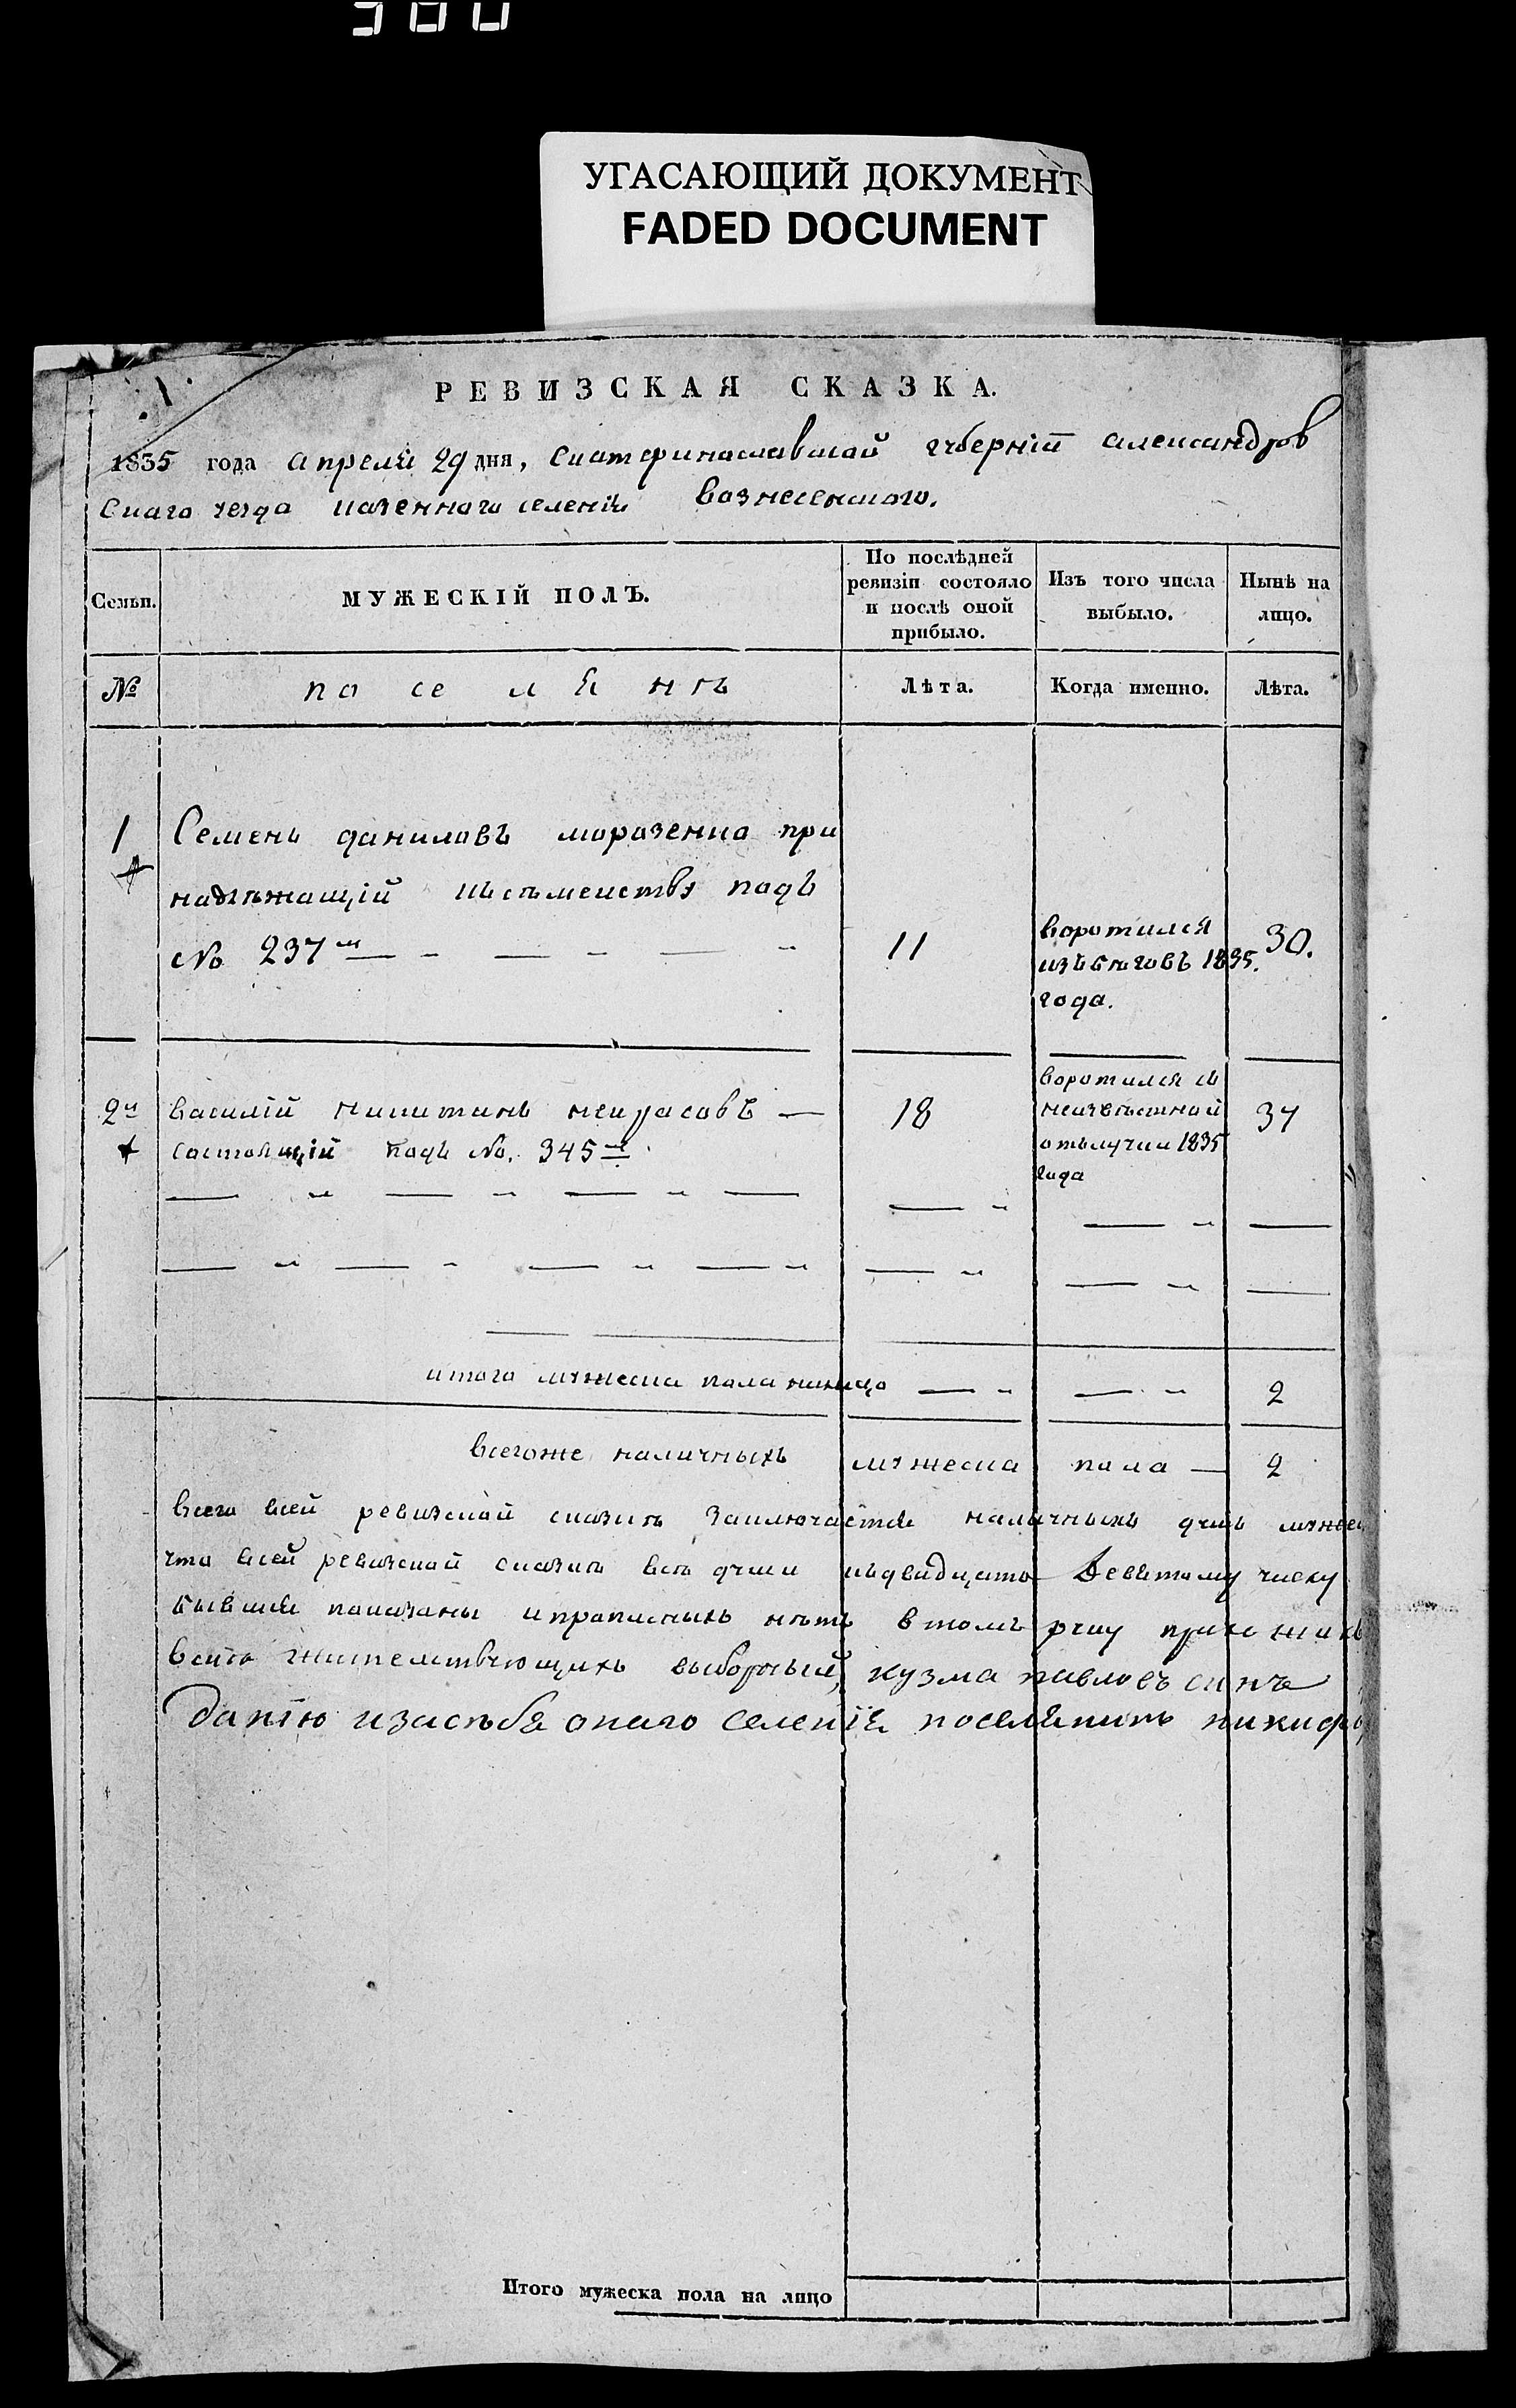 УГАСАЮЩИЙ ДОКУМЕНТ
FADED DOCUMENT
РЕВИЗСКАЯ СКАЗКА.
1835 года апреля 29 дня, Екатеринославской губерніи александров
скаго уезда казенного селенія вознесенского.
Семьи.
МУЖЕСКІЙ ПОЛЪ.
По послѣдней ревизіи состояло и послѣ оной прибыло.
Изъ того числа выбыло.
Нынѣ на лицо.
№
поселянѣ
Лѣта.
Когда именно.
Лѣта.
1 Семенъ даниловъ морозенко при
надлежащій къ семейству подъ
№ 237м
11
воротился
изъ бѣговъ 1835.
года.
30.
2й василій никитинъ некрасовъ —
состоящій подъ №. 345м
18
воротился съ
неизвѣстной
отлучки 1835
года
37
итого мужеска пола налицо 2
всегоже наличныхъ мужеска пола — 2
всего всей ревизской сказкѣ заключается наличныхъ душъ мужес
что всей ревизской сказкѣ всѣ души къ двадцать девятому числу
бывшія показаны и прописныхъ нѣтъ в томъ руку
жительствующихъ выборный, кузма павловъ синъ
селенія поселянинъ никифо
Итого мужеска пола на лицо